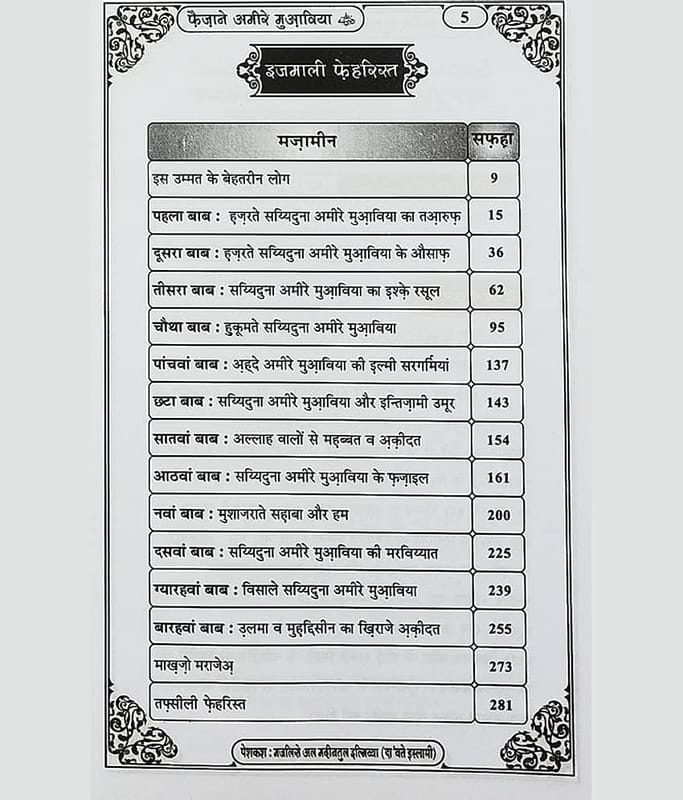 फैज़ाने अमीरे मुआ़विया
5
इजमाली फ़ेहरिस्त
मज़ामीन सफ़ह़ा
इस उम्मत के बेहतरीन लोग 9
पहला बाब : ह़ज़रते सय्यिदुना अमीरे मुआ़विया का तआ़रुफ़ 15
दूसरा बाब : ह़ज़रते सय्यिदुना अमीरे मुआ़विया के औसाफ़ 36
तीसरा बाब : सय्यिदुना अमीरे मुआ़विया का इश्के़ रसूल 62
चौथा बाब : हु़कूमते सय्यिदुना अमीरे मुआ़विया 95
पांचवां बाब : अ़ह्दे अमीरे मुआ़विया की इल्मी सरगर्मियां 137
छटा बाब : सय्यिदुना अमीरे मुआ़विया और इन्तिज़ामी उमूर 143
सातवां बाब : अल्लाह वालों से मह़ब्बत व अ़क़ीदत 154
आठवां बाब : सय्यिदुना अमीरे मुआ़विया के फ़ज़ाइल 161
नवां बाब : मुशाजराते सह़ाबा और हम 200
दसवां बाब : सय्यिदुना अमीरे मुआ़विया की मरविय्यात 225
ग्यारहवां बाब : विसाले सय्यिदुना अमीरे मुआ़विया 239
बारहवां बाब : उ़लमा व मुह़द्दिसीन का ख़िराजे अ़क़ीदत 255
माख़ज़ो मराजेअ़ 273
तफ़्सीली फ़ेहरिस्त 281
पेशकश : मजलिसे अल मदीनतुल इल्मिय्या (दा'वते इस्लामी)